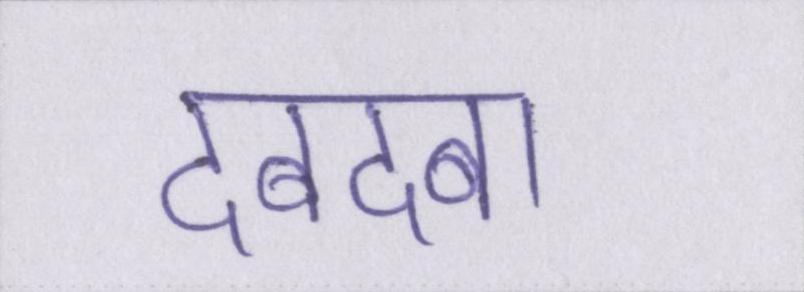 दबदबा